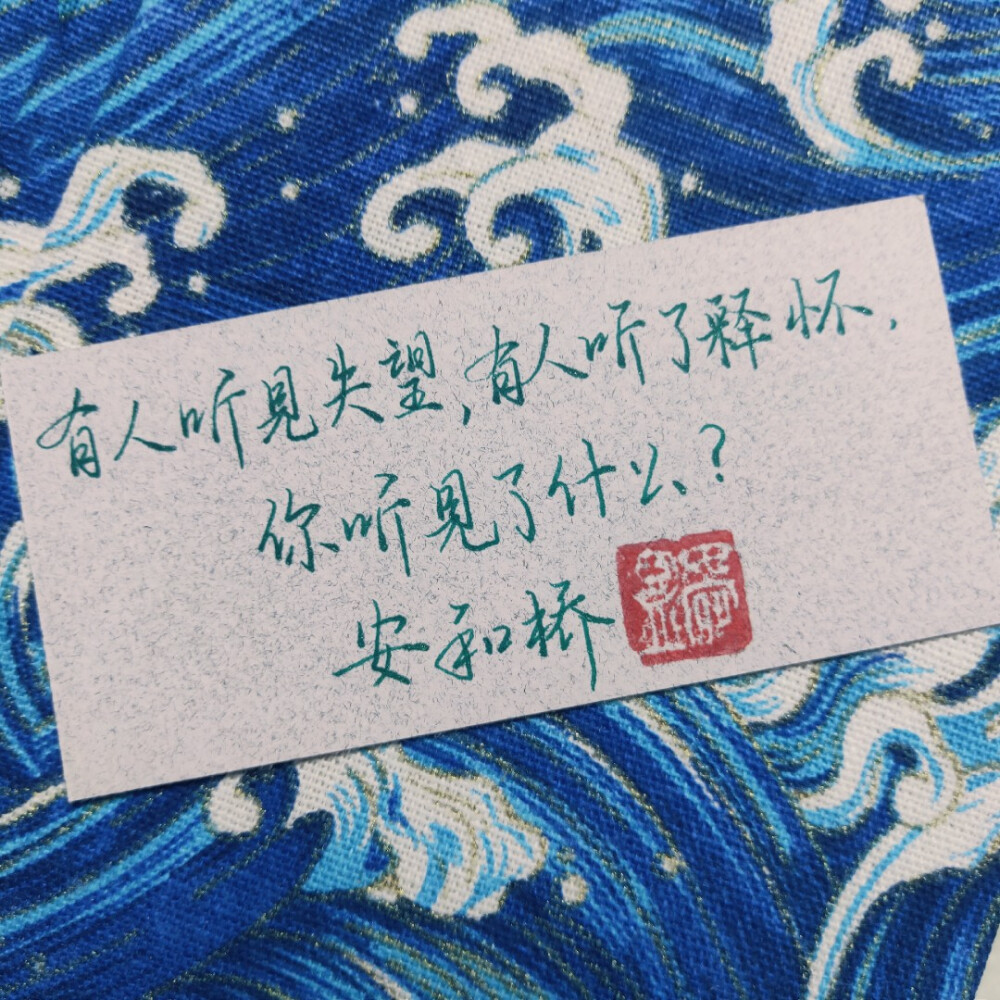 有人听见失望,有人听了释怀.
你听见了什么?
安和桥